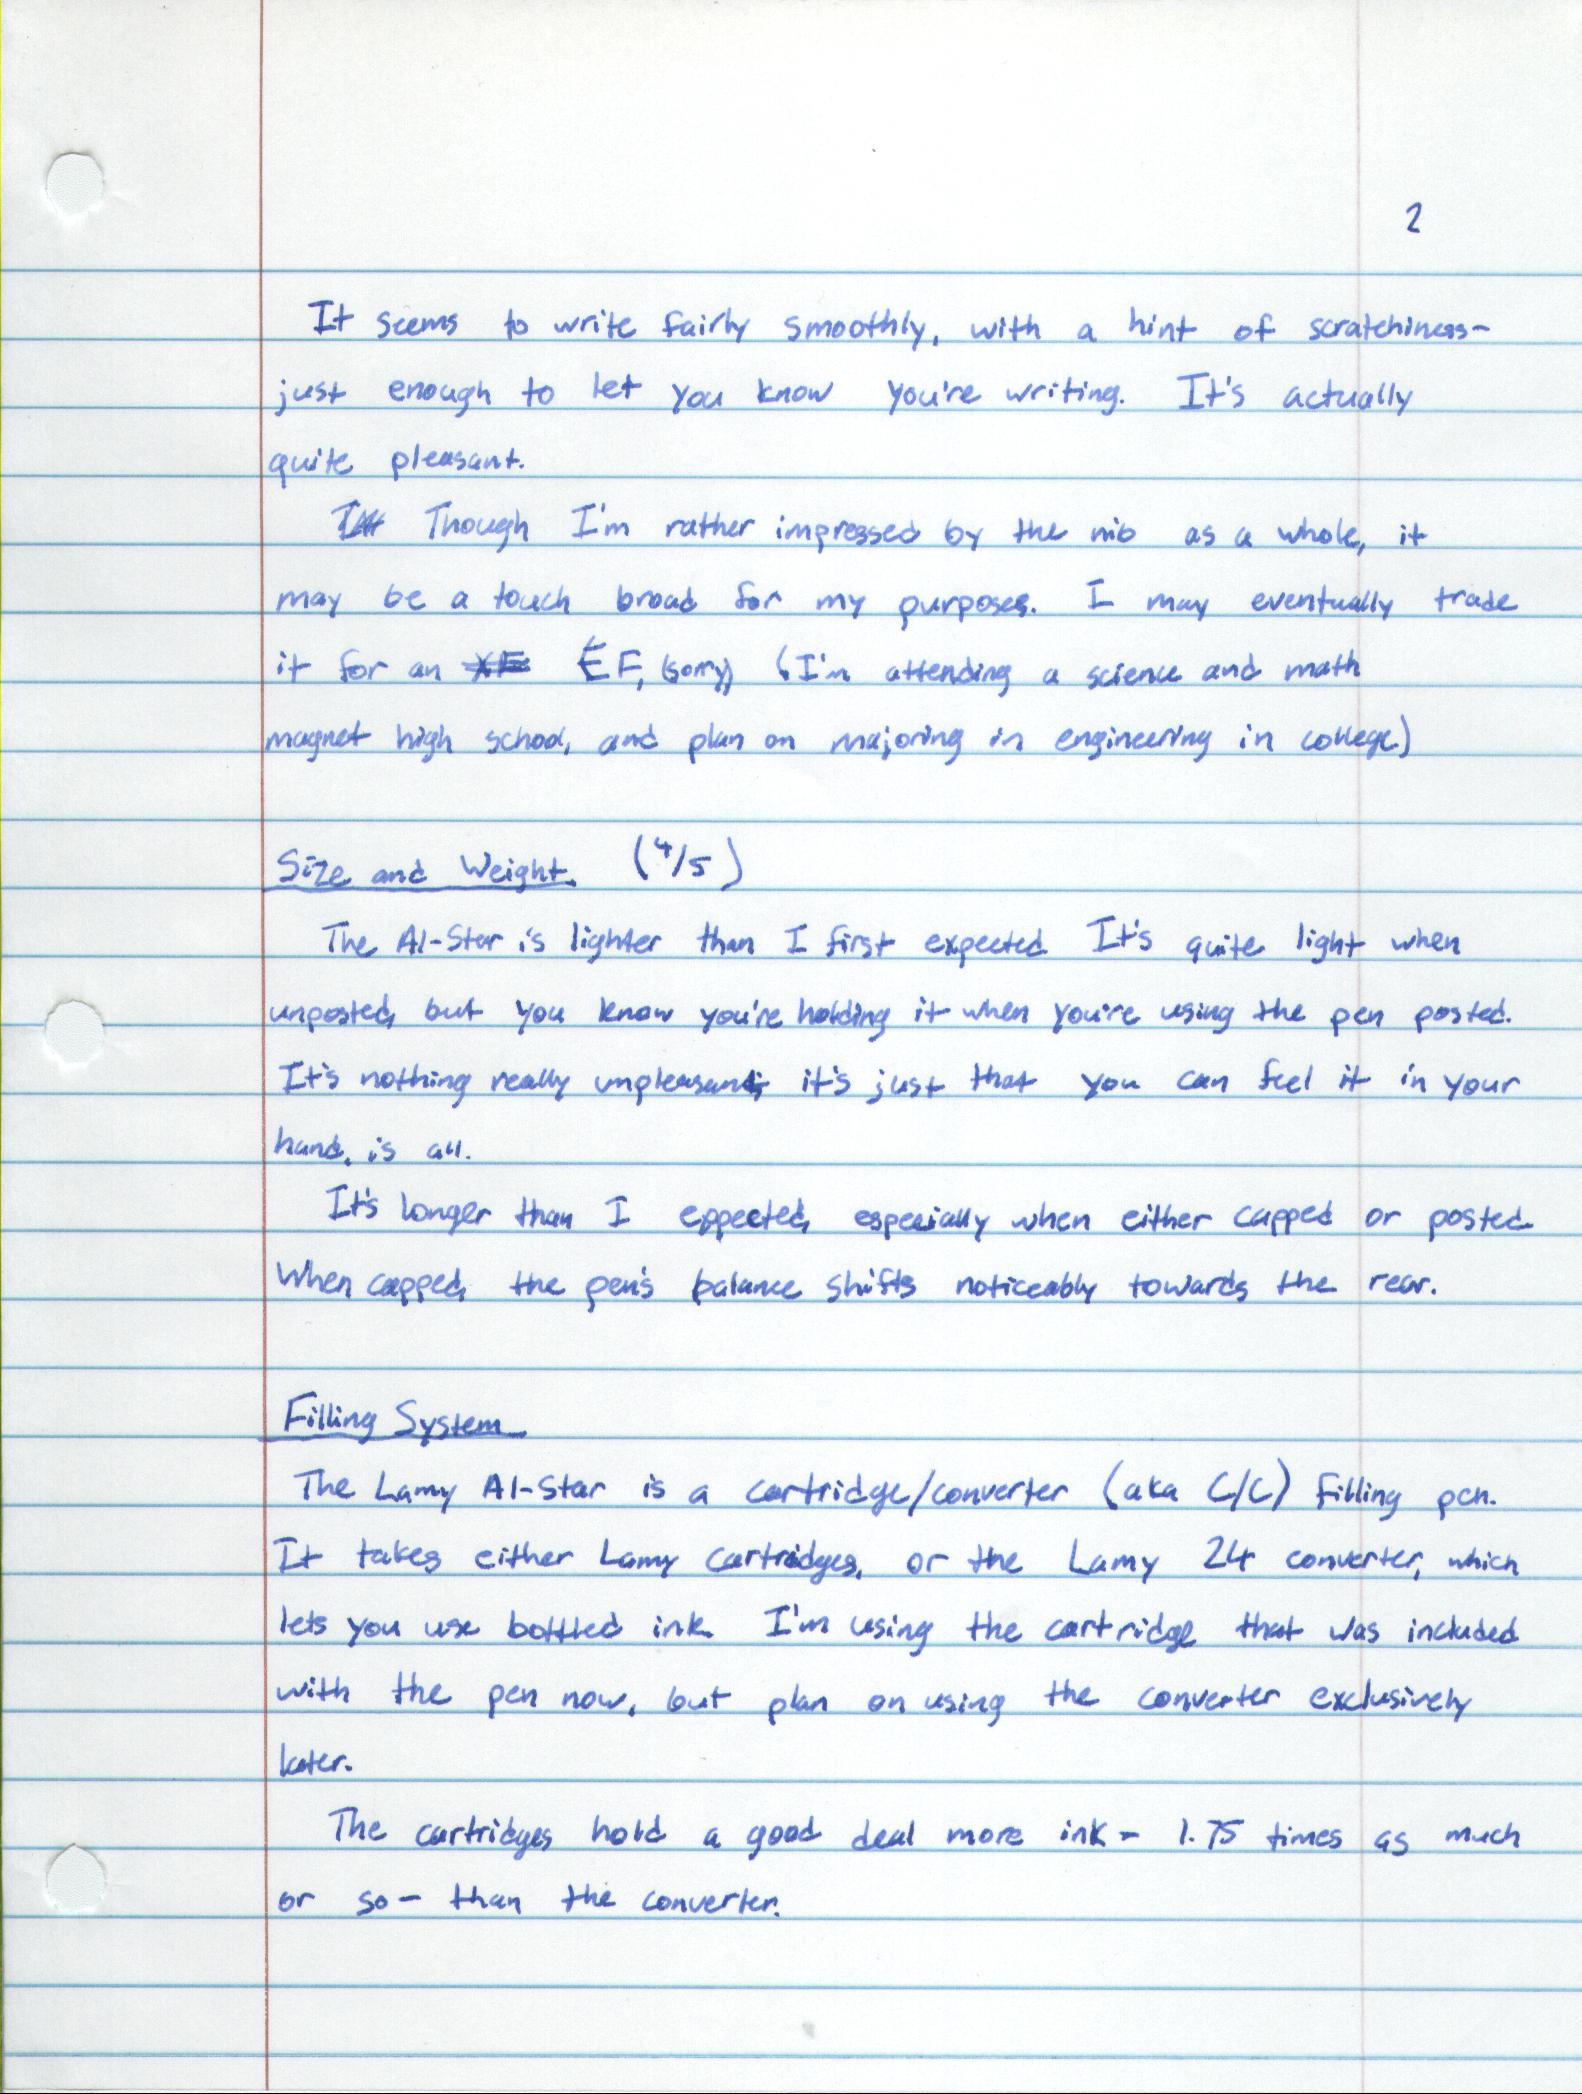 2
It seems to write fairly smoothly, with a hint of scratchiness-
just enough to let you know you're writing. It's actually
quite pleasant.
Though I'm rather impressed by the nib as a whole, it
may be a touch broad for my purposes. I may eventually trade
it for an XF EF, (sorry) (I'm attending a science and math
magnet high school, and plan on majoring in engineering in college.)
Size and Weight. (4/5)
The Al-Star is lighter than I first expected. It's quite light when
unposted, but you know you're holding it when you're using the pen posted.
It's nothing really unpleasant; it's just that you can feel it in your
hand, is all.
It's longer than I eppected, especially when either capped or posted.
When capped, the pen's balance shifts noticeably towards the rear.
Filling System
The Lamy Al-Star is a cartridge/converter (aka C/C) filling pen.
It takes either Lamy cartridges, or the Lamy Z24 converter, which
lets you use bottled ink. I'm using the cartridge that was included
with the pen now, but plan on using the converter exclusively
later.
The cartridges hold a good deal more ink - 1.75 times as much
or so - than the converter.